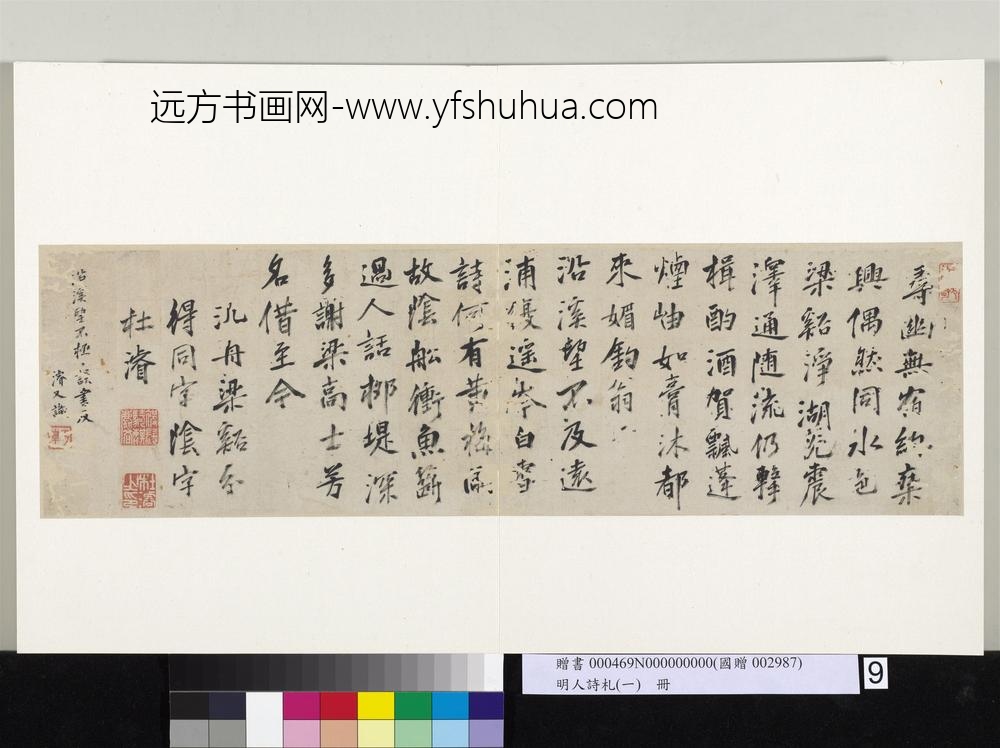 远方书画网-www.yfshuhua.com
尋幽無宿約乘
興偶然同水色
梁谿淨湖光震
澤通隨流仍擊
楫酌酒賀飄蓬
煙岫如膏沐都
來媚釣翁
沿溪望不及遠
浦復遥岑白雪
詩何有黄梅
故陰船衝魚籪
過人話柳堤深
多謝梁高士芳
名借至今
汎舟梁谿分
得同字陰字
杜濬
沿溪望不極 書及
濬又識
贈書 000469N000000000(國贈 002987)
明人詩札(一) 冊
9